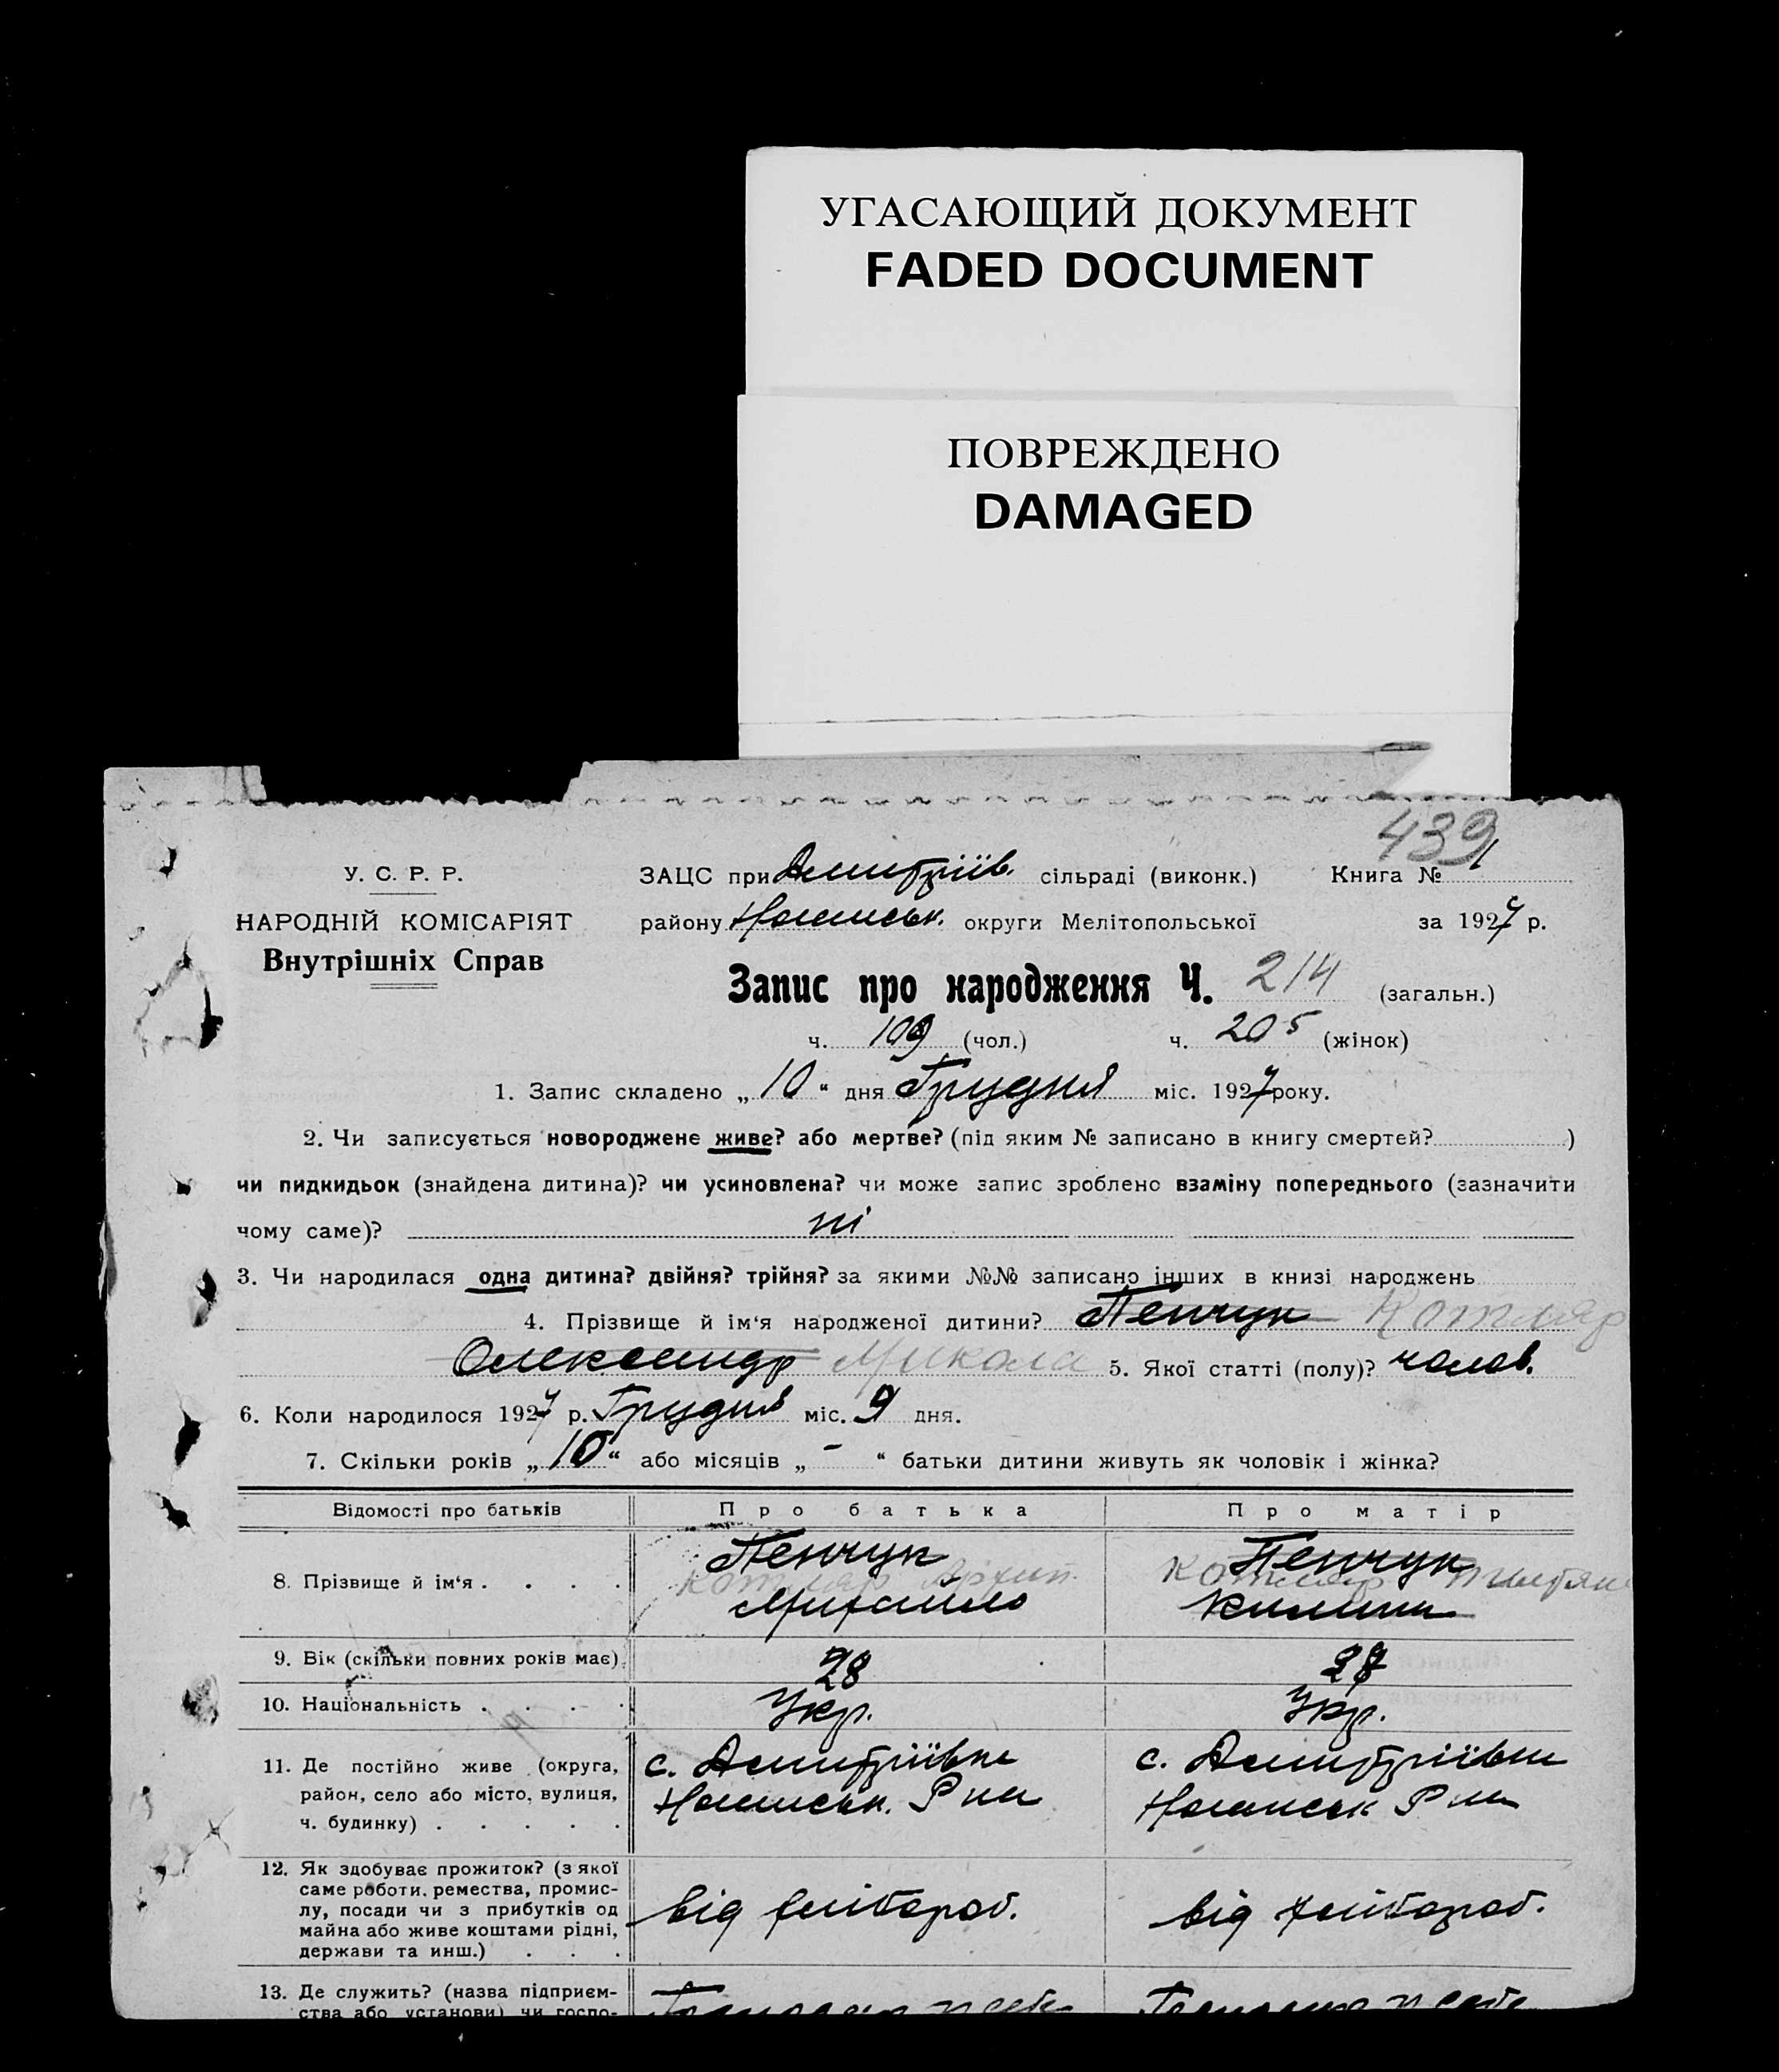 УГАСАЮЩИЙ ДОКУМЕНТ
FADED DOCUMENT
ПОВРЕЖДЕНО
DAMAGED
439
У. С. Р. Р.
НАРОДНІЙ КОМІСАРІЯТ
Внутрішніх Справ
ЗАЦС при Дмитріїв. сільраді (виконк.) Книга № 1
району Ногайськ. округи Мелітопольської за 1927 р.
Запис про народження Ч. 214 (загальн.)
ч. 109 (чол.) ч. 205 (жінок)
1. Запис складено „ 10 “ дня Грудня міс. 1927 року.
2. Чи записується новороджене живе? або мертве? (під яким № записано в книгу смертей? )
чи пидкидьок (знайдена дитина)? чи усиновлена? чи може запис зроблено взаміну попереднього (зазначити
чому саме)? ні
3. Чи народилася одна дитина? двійня? трійня? за якими №№ записано інших в книзі народжень
4. Прізвище й ім‘я народженої дитини? Пенчук Котляр
Олександр Микола 5. Якої статті (полу)? чолов.
6. Коли народилося 1927 р. Грудня міс. 9 дня.
7. Скільки років „ 10 “ або місяців „ - “ батьки дитини живуть як чоловік і жінка?
Відомості про батьків Про батька Про матір
8. Прізвище й ім‘я . . . . Пенчук Пенчук
Котляр Архип. Котляр
Михайло Килина
9. Вік (скільки повних років має). 28 28
10. Національність . . . . Укр. Укр.
11. Де постійно живе (округа, с. Дмитріївка с. Дмитріївка
район, село або місто, вулиця, Ногайськ. Р на Ногайськ Р на
ч. будинку) . . . . .
12. Як здобуває прожиток? (з якої
саме роботи, ремества, промис-
лу, посади чи з прибутків од від хлібороб. від хлібороб.
майна або живе коштами рідні,
держави та инш.) . . .
13. Де служить? (назва підприєм-
ства або установи) чи госпо-